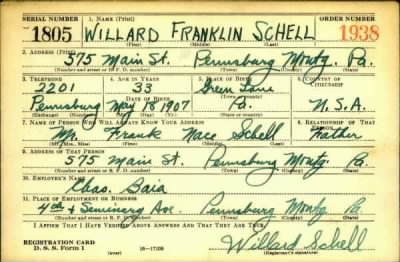 SERIAL NUMBER 1. NAME (Print) ORDER NUMBER
1805 WILLARD FRANKLIN SCHELL 1938
(First) (Middle) (Last)
2. ADDRESS (Print)
575 Main St. Pennsburg Montg. Pa.
(Number and street or R. F. D. number) (Town) (County) (State)
3. TELEPHONE 4. AGE IN YEARS 5. PLACE OF BIRTH 6. COUNTRY OF CITIZENSHIP
2201 33 Green Lane
DATE OF BIRTH
Pennsburg May 18 1907 Pa. U.S.A.
7. NAME OF PERSON WHO WILL ALWAYS KNOW YOUR ADDRESS 8. RELATIONSHIP OF THAT PERSON
Mr. Frank Nace Schell Father
(Mr., Mrs., Miss) (First) (Middle) (Last)
9. ADDRESS OF THAT PERSON
575 Main St. Pennsburg Montg. Pa.
(Number and street or R. F. D. number) (Town) (County) (State)
10. EMPLOYER'S NAME
Chas. Baia
11. PLACE OF EMPLOYMENT OR BUSINESS
4th & Seminary Ave. Pennsburg Montg. Pa.
(Number and street or R. F. D. number) (Town) (County) (State)
I AFFIRM THAT I HAVE VERIFIED ABOVE ANSWERS AND THAT THEY ARE TRUE.
REGISTRATION CARD
D. S. S. Form 1 16-17105 Willard Schell
(over) (Registrant's signature)